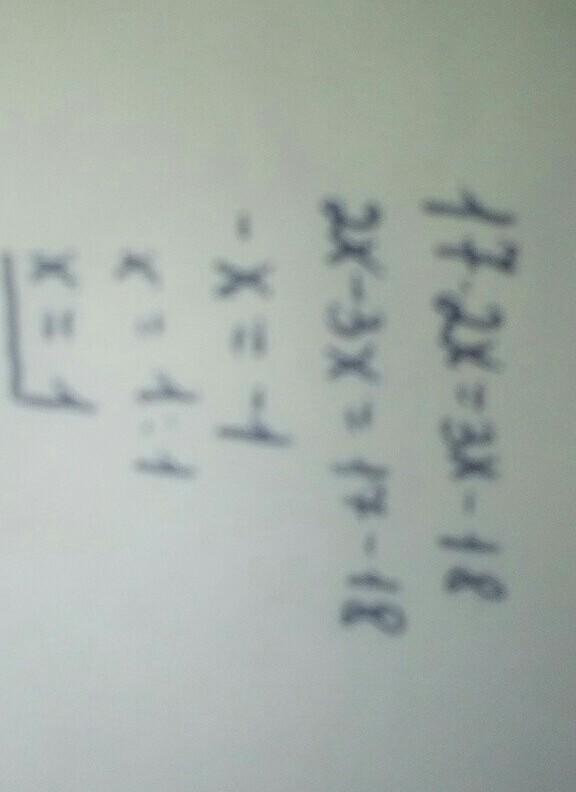 17-2x=3x-18
2x-3x=17-18
-x=-1
x=1:1
x=1